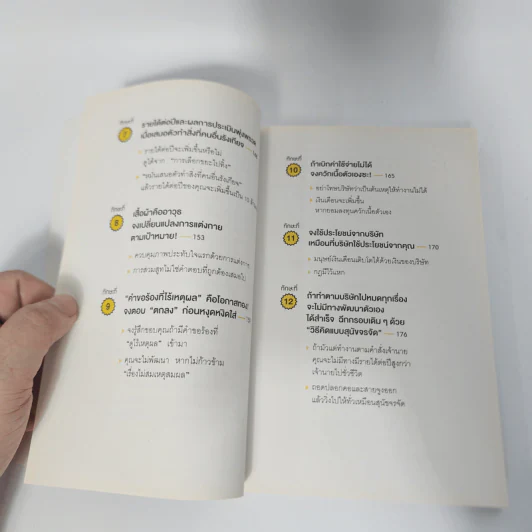 ทักษะที่
7
รายได้ต่อปีและผลการประเมินพุ่งพรวด
เมื่อเสนอตัวทำสิ่งที่คนอื่นรังเกียจ
รายได้ต่อปีจะเพิ่มขึ้นหรือไม่
ดูได้จาก "การเลือกขยะไปทิ้ง"
"หมั่นเสนอตัวทำสิ่งที่คนอื่นรังเกียจ"
แล้วรายได้ต่อปีของคุณจะเพิ่มขึ้นเป็น 10 ล้าน
ทักษะที่
8
เสื้อผ้าคืออาวุธ
จงเปลี่ยนแปลงการแต่งกาย
ตามเป้าหมาย! — 153
ควบคุมภาพประทับใจแรกด้วยการแต่งกาย
การสวมสูทไม่ใช่คำตอบที่ถูกต้องเสมอไป
ทักษะที่
9
"คำขอร้องที่ไร้เหตุผล" คือโอกาสทอง!
จงตอบ "ตกลง" ก่อนหงุดหงิดใส่
จงรู้สึกขอบคุณถ้ามีคำขอร้องที่
"ดูไร้เหตุผล" เข้ามา
คุณจะไม่พัฒนา หากไม่ก้าวข้าม
"เรื่องไม่สมเหตุสมผล"
ทักษะที่
10
ถ้าเบิกค่าใช้จ่ายไม่ได้
จงควักเนื้อตัวเองซะ! — 165
อย่าโทษบริษัทว่าเป็นต้นเหตุให้ทำงานไม่ได้
เงินเดือนจะเพิ่มขึ้น
หากยอมลงทุนควักเนื้อตัวเอง
ทักษะที่
11
จงใช้ประโยชน์จากบริษัท
เหมือนที่บริษัทใช้ประโยชน์จากคุณ — 170
มนุษย์เงินเดือนเติบโตได้ด้วยเงินของบริษัท
กฎมีไว้แหก
ทักษะที่
12
ถ้าทำตามบริษัทไปหมดทุกเรื่อง
จะไม่มีทางพัฒนาตัวเอง
ได้สำเร็จ ฉีกกรอบเดิม ๆ ด้วย
"วิธีคิดแบบสุนัขจรจัด" — 176
ถ้ามัวแต่ทำงานตามคำสั่งเจ้านาย
คุณจะไม่มีทางมีรายได้ต่อปีสูงกว่า
เจ้านายไปชั่วชีวิต
ถอดปลอกคอและสายจูงออก
แล้ววิ่งไปให้ทั่วเหมือนสุนัขจรจัด